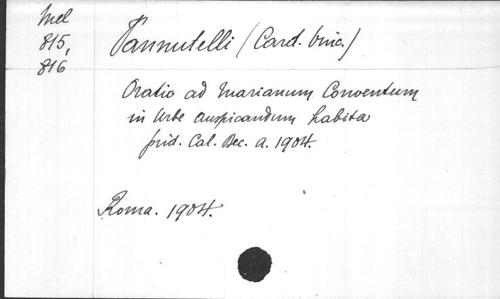 Mel
815,
816
Vannutelli (Card. Vinc.)
Oratio ad Marianum Conventum
in Urbe auspicandum habita
prid. Cal. Dec. a. 1904.
Roma. 1904.